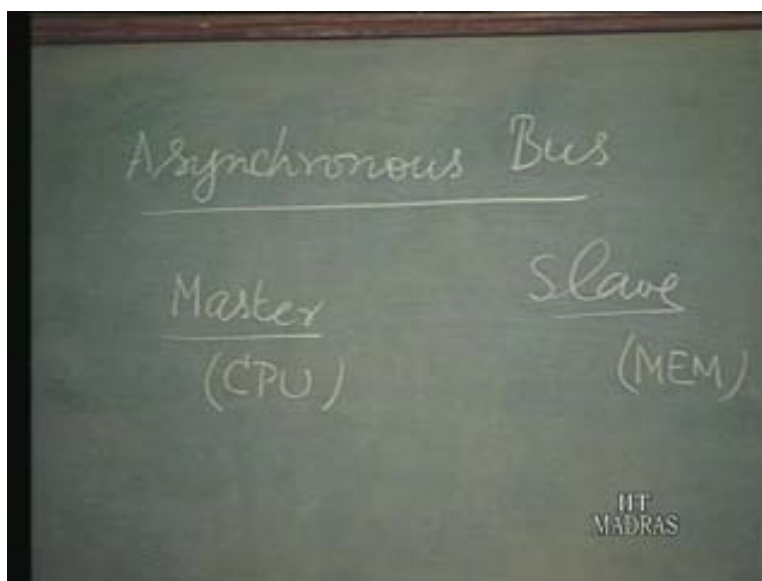 Asynchronous Bus
Master Slave
(CPU) (MEM)
IIT
MADRAS